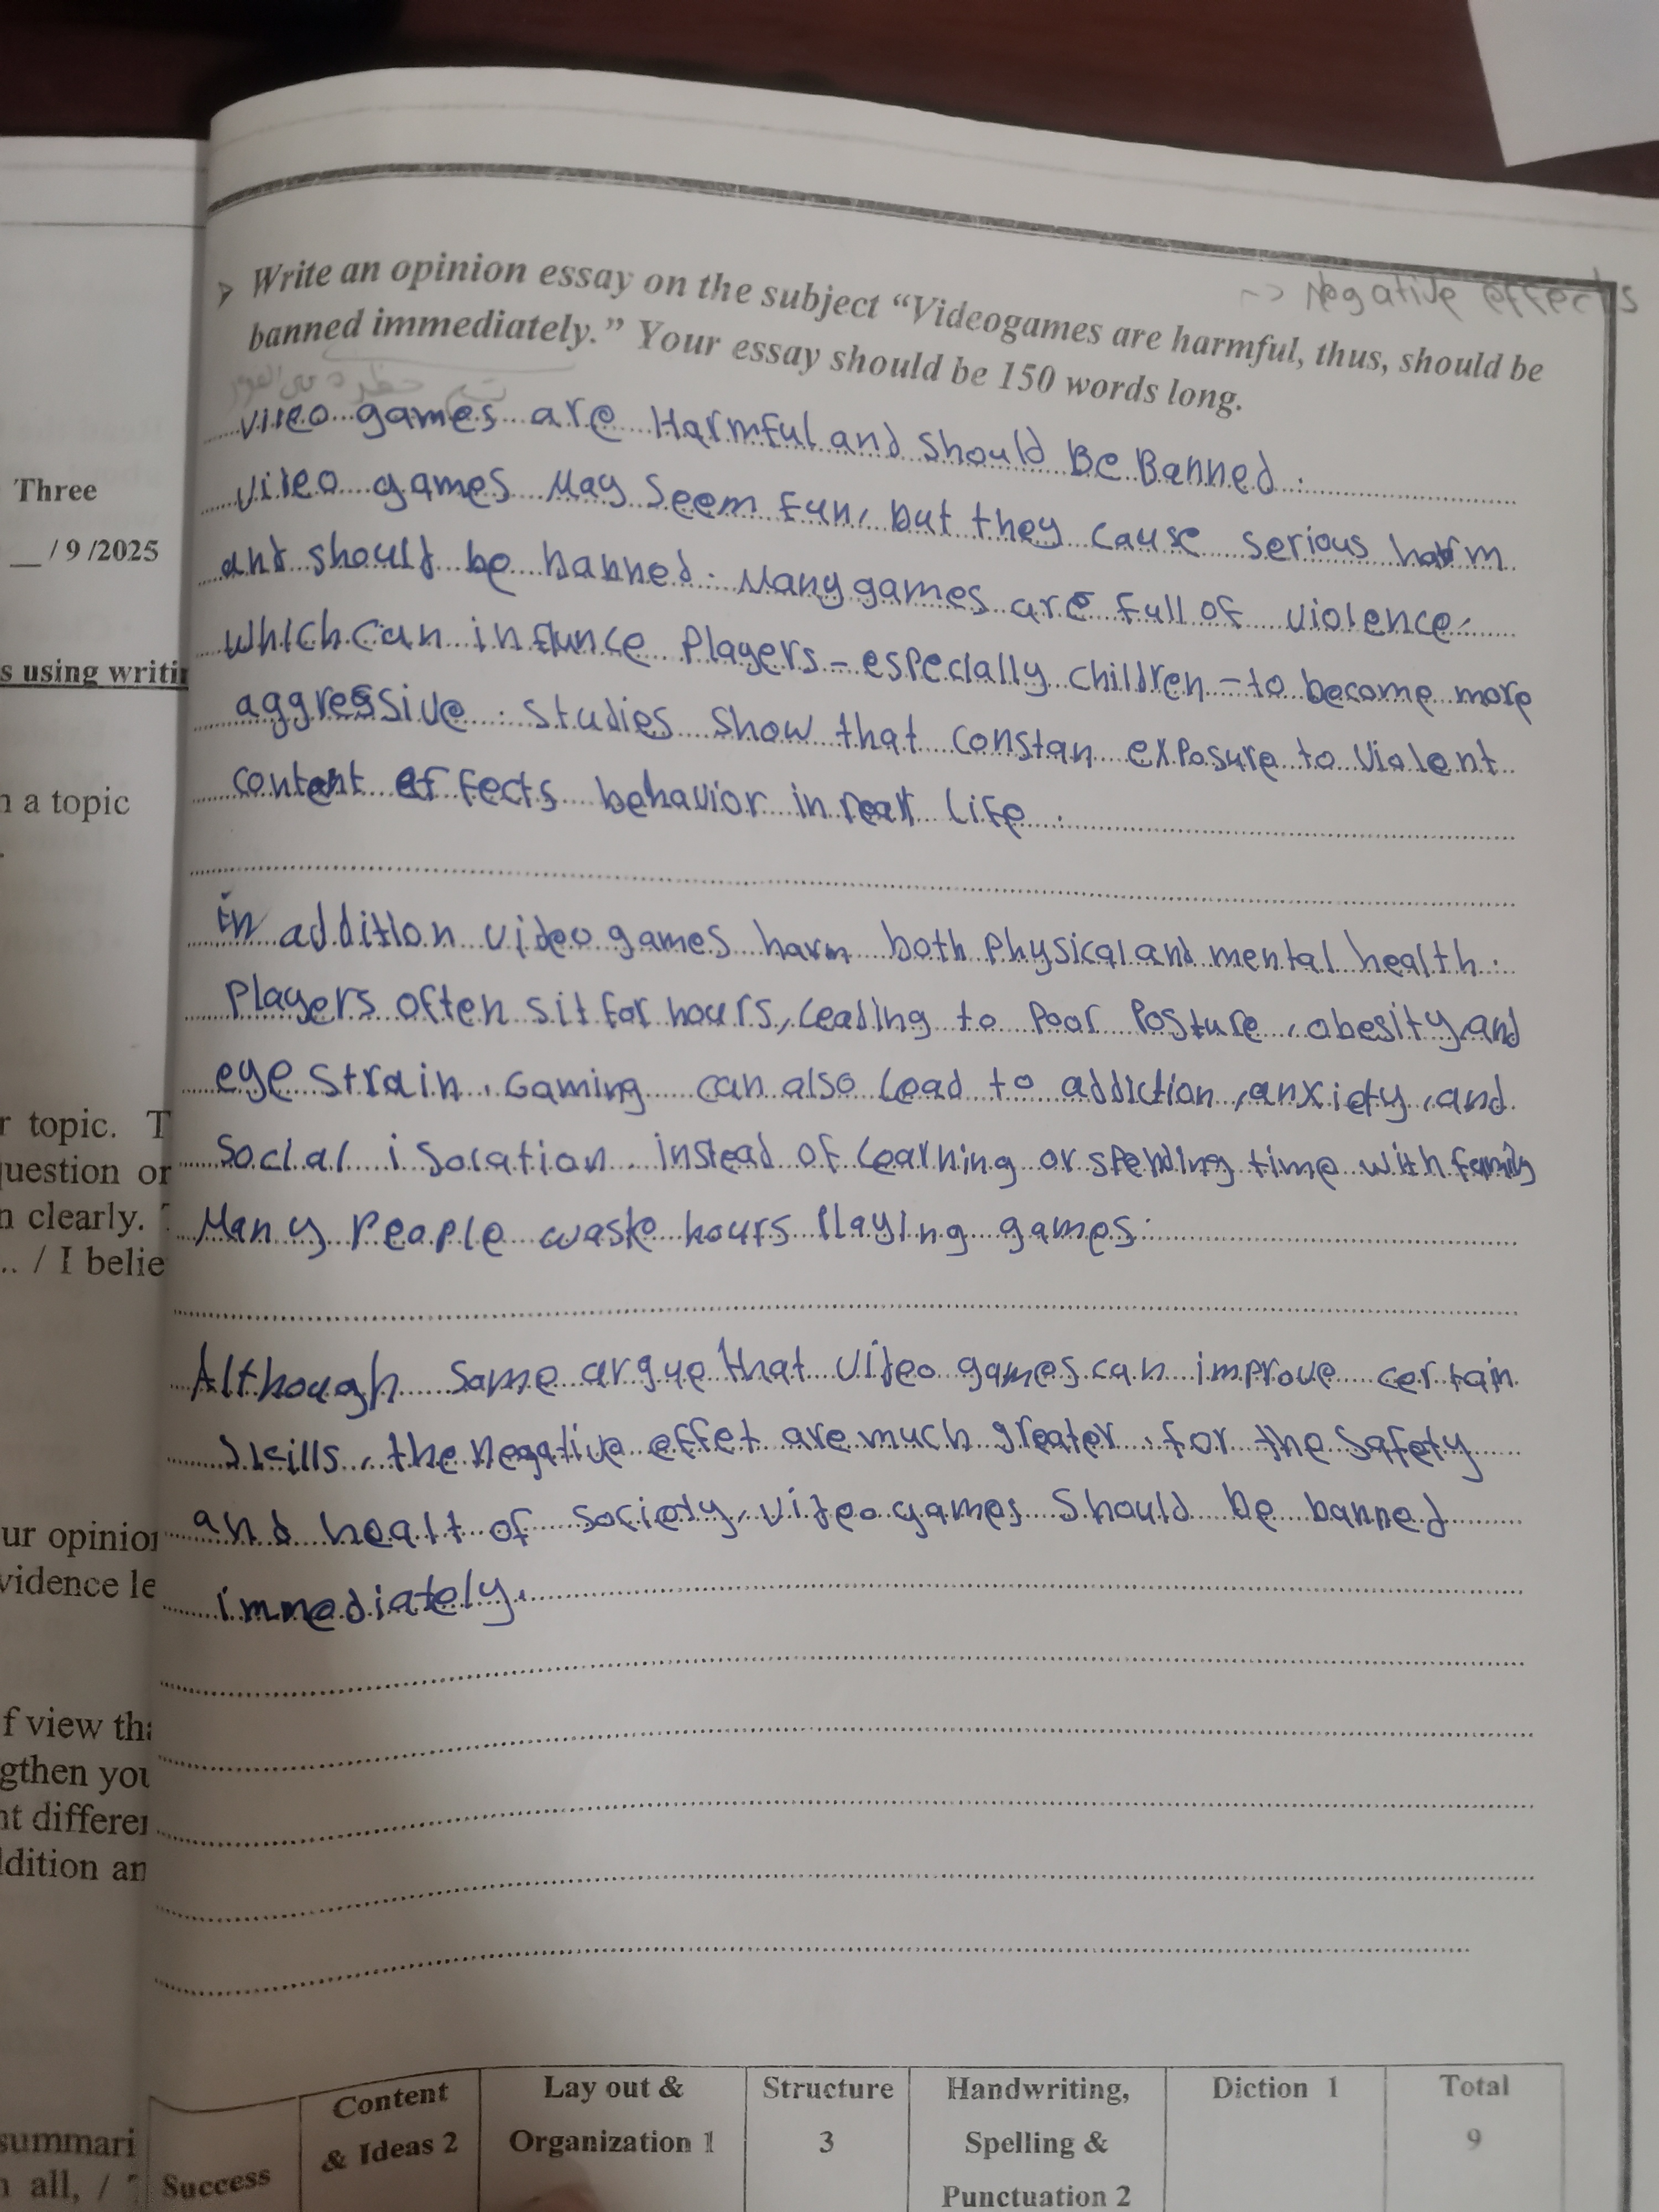 ➤ Write an opinion essay on the subject “Videogames are harmful, thus, should be
banned immediately.” Your essay should be 150 words long.
-> Negative effects
video games are Harmful and Should Be Banned.
video games May Seem fun, but they cause serious harm
and should be banned. Many games are full of violence
which can influnce Players - especially children - to become more
aggressive. Studies Show that constan exposure to Violent
content affects behavior in real life.
in addition video games harm both Physical and mental health.
Players often sit for hours, leading to Poor Posture, obesity, and
eye Strain. Gaming can also lead to addiction, anxiety, and
Social isolation. instead of learning or spending time with family
Many People waste hours Playing games.
Although Some argue that video games can improve certain
Skills, the negative effet are much greater. for the Safety
and healt of Society, video games Should be banned
immediately.
Three
__ / 9 /2025
s using writi
n a topic
r topic. T
question or
n clearly.
.. / I belie
ur opinion
vidence le
f view tha
gthen you
nt differen
ddition an
summari
n all, /
Success
Content
& Ideas 2
Lay out &
Organization 1
Structure
3
Handwriting,
Spelling &
Punctuation 2
Diction 1
Total
9